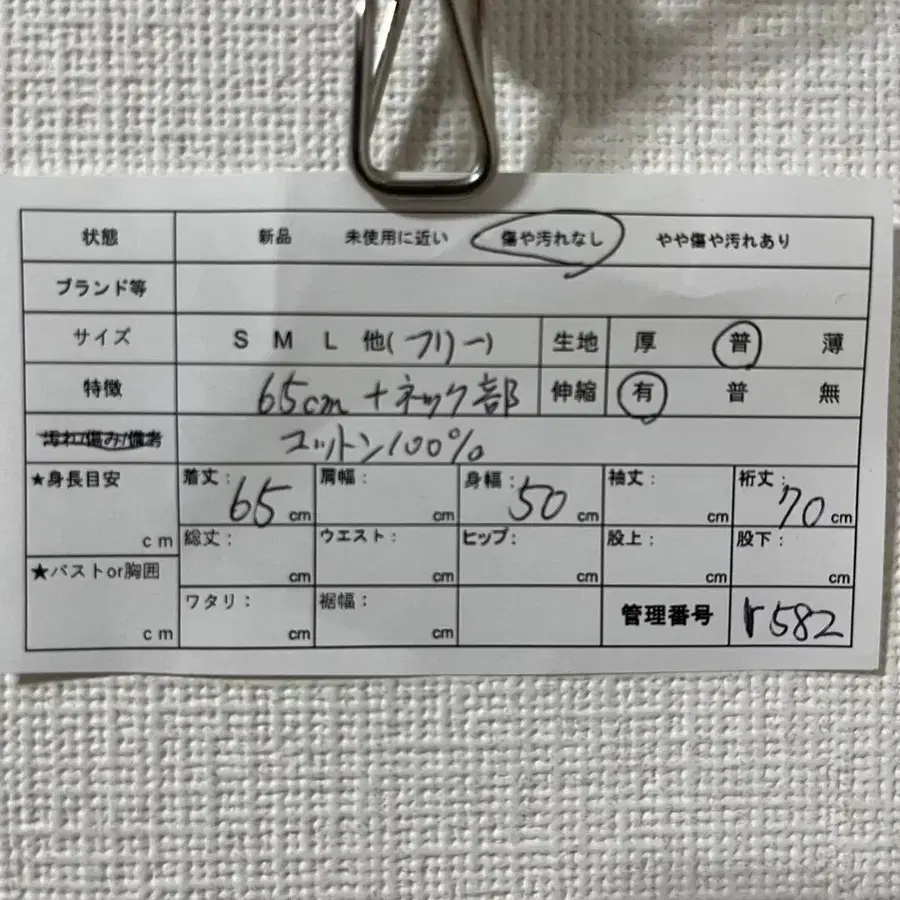 状態 新品 未使用に近い 傷や汚れなし やや傷や汚れあり
ブランド等
サイズ S M L 他(フリー) 生地 厚 普 薄
特徴 65cm+ネック部 伸縮 有 普 無
汚れ/傷み/備考 コットン100%
★身長目安 cm 着丈: 65 cm 肩幅: cm 身幅: 50 cm 袖丈: cm 裄丈: 70 cm
総丈: cm ウエスト: cm ヒップ: cm 股上: cm 股下: cm
★バストor胸囲 cm ワタリ: cm 裾幅: cm 管理番号 r582